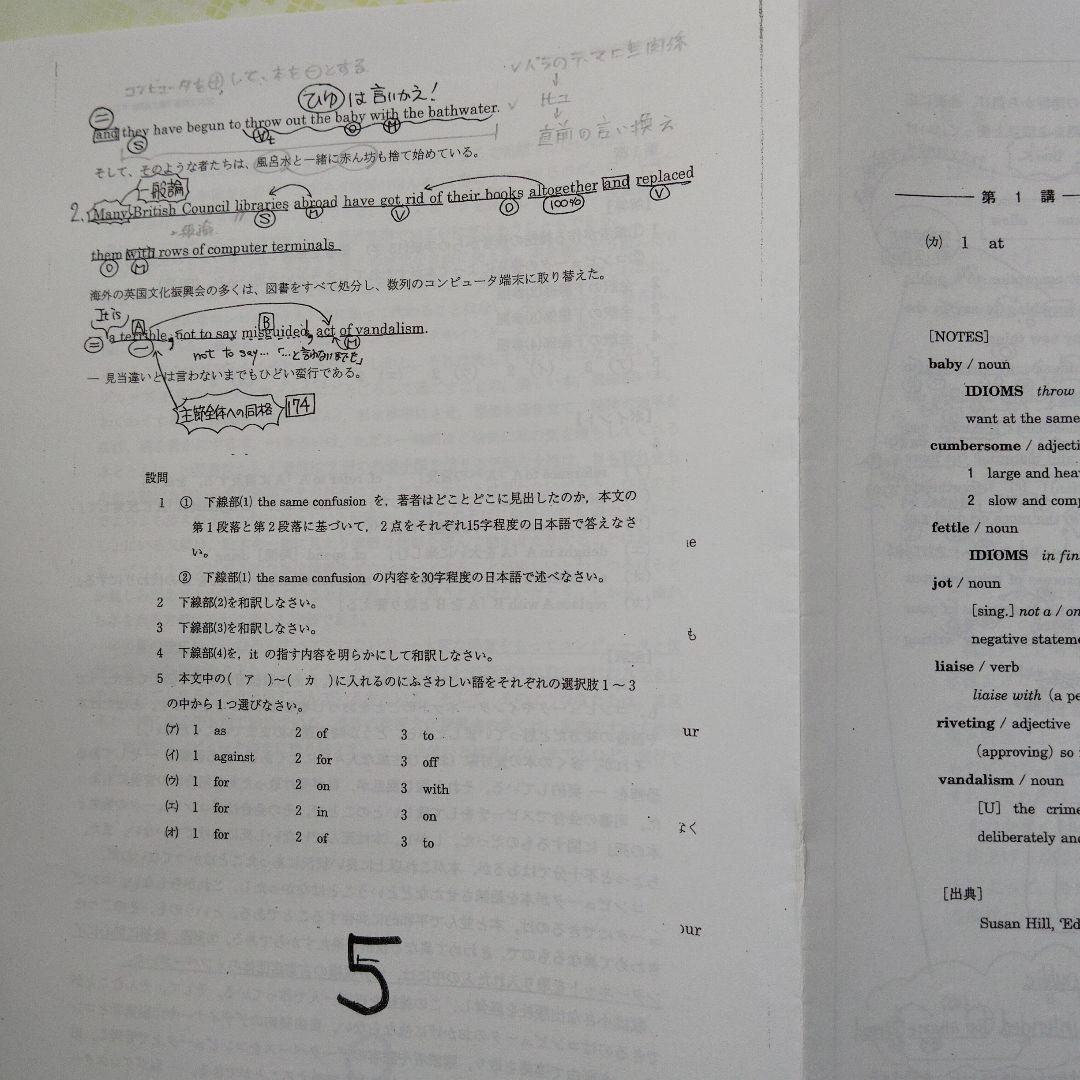 コンピュータを⊕して、本を⊖とする
ひゆは言いかえ!
パラのテーマに無関係
↓
ヒユ
↓
直前の言い換え
and they have begun to throw out the baby with the bathwater.
S Vt O M
そして、そのような者たちは、風呂水と一緒に赤ん坊も捨て始めている。
一般論
2. Many British Council libraries abroad have got rid of their books altogether and replaced
S M V O 100% V
them with rows of computer terminals
O M
海外の英国文化振興会の多くは、図書をすべて処分し、数列のコンピュータ端末に取り替えた。
It is
A B
= a terrible, not to say misguided, act of vandalism.
not to say… 「…と言わないまでも」
M
― 見当違いとは言わないまでもひどい蛮行である。
主節全体への同格 174
設問
1 ① 下線部(1) the same confusion を,著者はどことどこに見出したのか,本文の
第1段落と第2段落に基づいて,2点をそれぞれ15字程度の日本語で答えなさ
い。
② 下線部(1) the same confusion の内容を30字程度の日本語で述べなさい。
2 下線部(2)を和訳しなさい。
3 下線部(3)を和訳しなさい。
4 下線部(4)を,it の指す内容を明らかにして和訳しなさい。
5 本文中の( ア )~( カ )に入れるのにふさわしい語をそれぞれの選択肢1~3
の中から1つ選びなさい。
(ア) 1 as 2 of 3 to
(イ) 1 against 2 for 3 off
(ウ) 1 for 2 on 3 with
(エ) 1 for 2 in 3 on
(オ) 1 for 2 of 3 to
5
も
ur
our
第 1 講
(カ) 1 at
[NOTES]
baby / noun
IDIOMS throw
want at the same
cumbersome / adjecti
1 large and hea
2 slow and comp
fettle / noun
IDIOMS in fin
jot / noun
[sing.] not a / on
negative stateme
liaise / verb
liaise with (a pe
riveting / adjective
(approving) so
vandalism / noun
[U] the crime
deliberately an
[出典]
Susan Hill, 'Ed